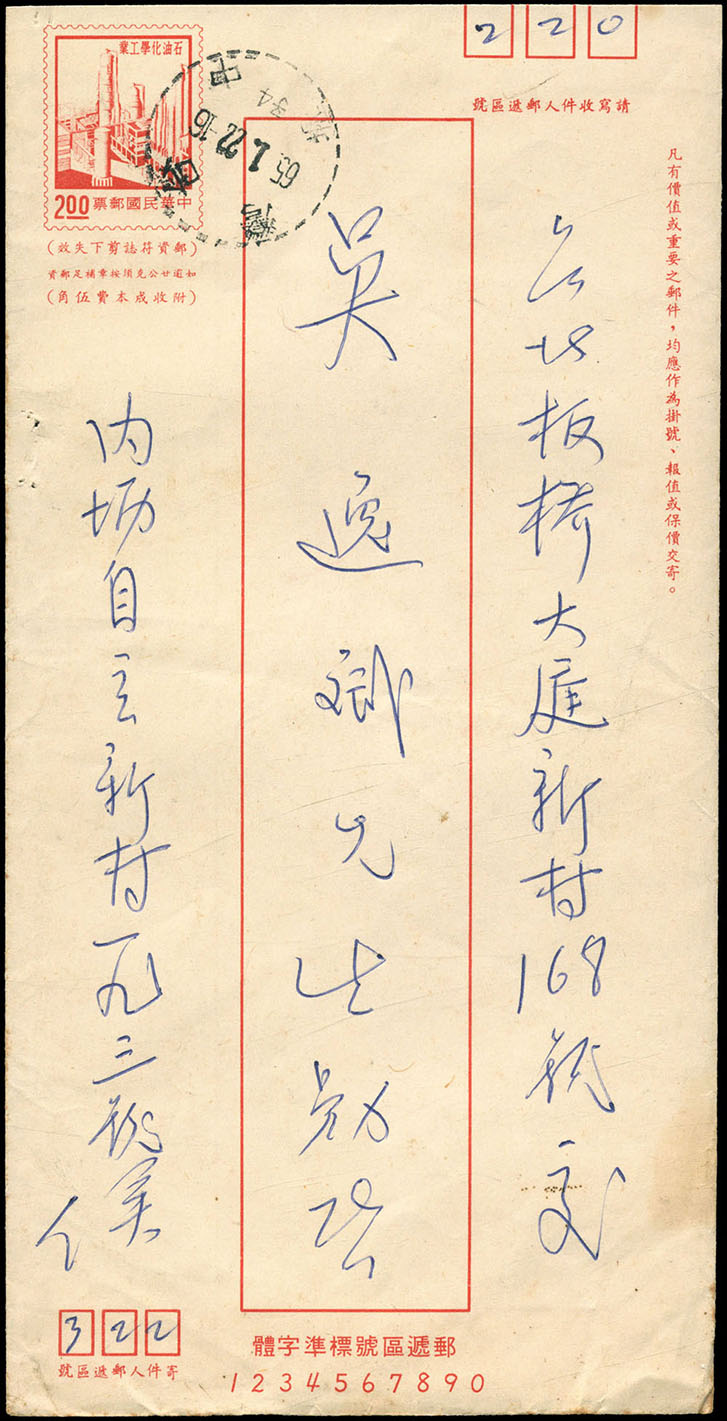 220
請寫收件人郵遞區號
凡有價值或重要之郵件，均應作為掛號、報值或保價交寄。
台北板橋大庭新村168號交
吳逸卿先生勛啓
內壢自立新村一九三號吳
石油化學工業
中華民國郵票
2.00
（郵資符誌剪下失效）
如逾廿公克須按章補足郵資
（附收成本費伍角）
65.1.22-16
中壢
322
寄件人郵遞區號
郵遞區號標準字體
1234567890